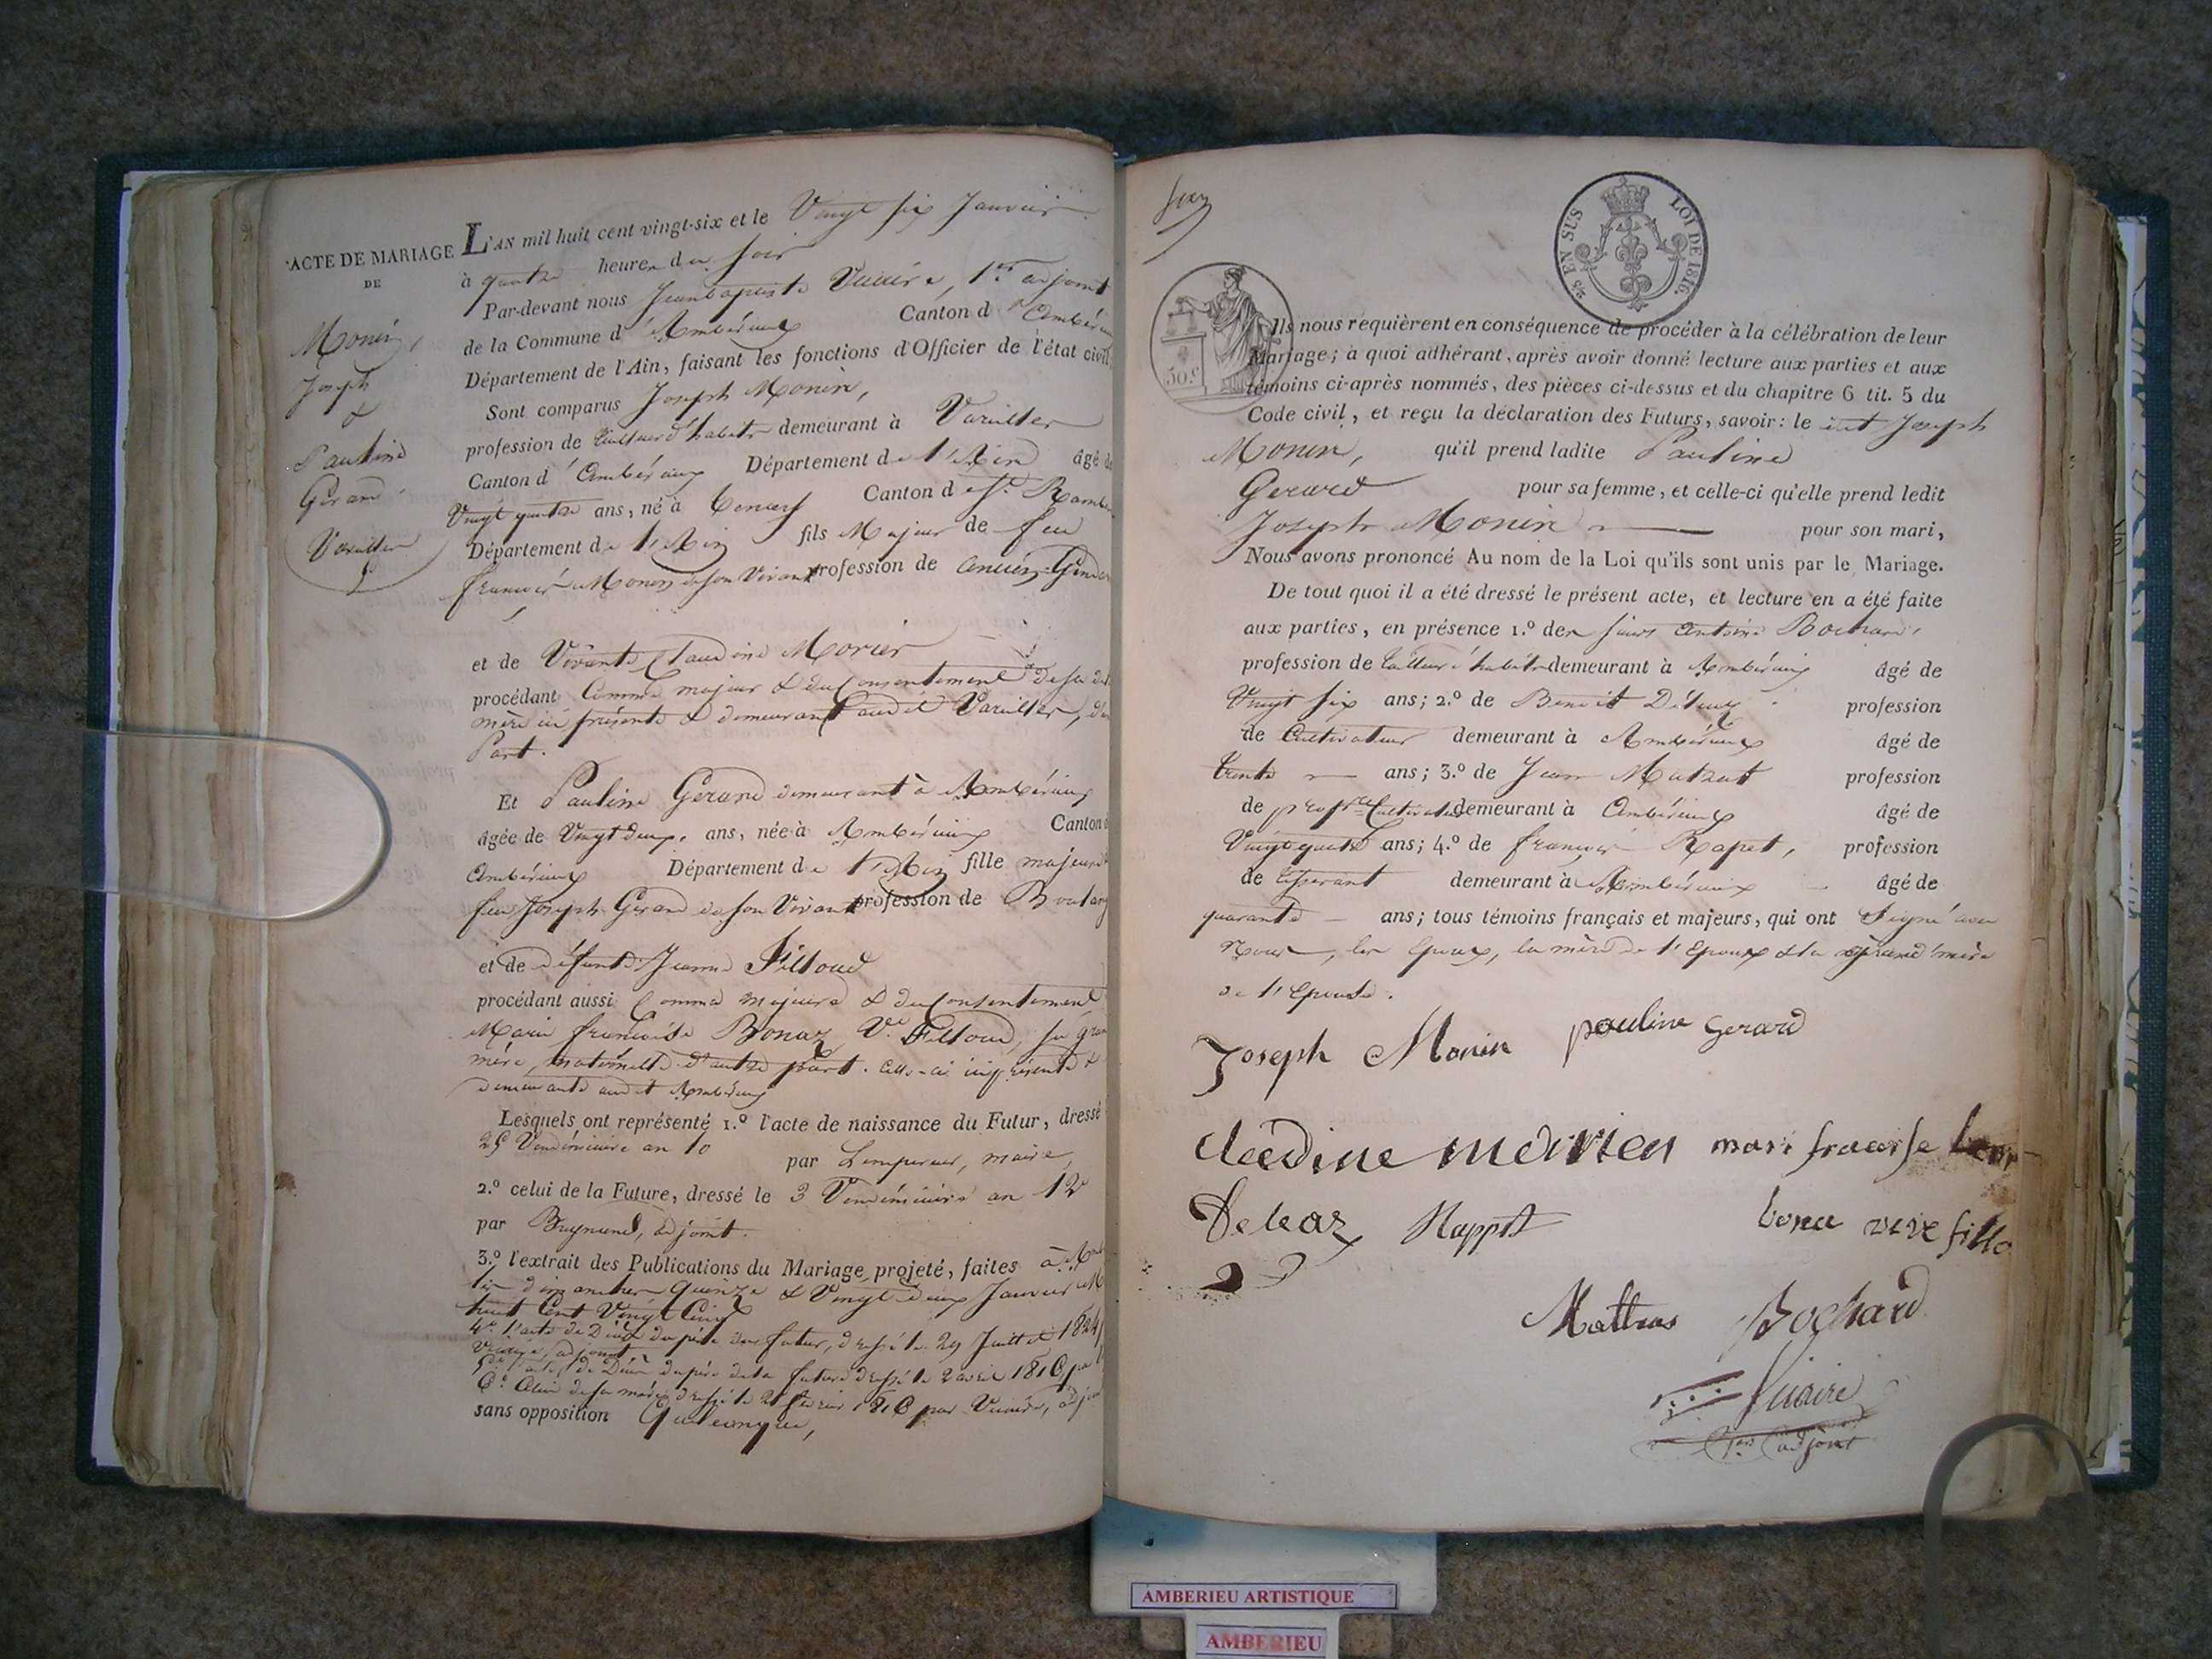 ACTE DE MARIAGE
DE
Monin,
Joseph
&
Pauline
Gerard
Vareilles
L'AN mil huit cent vingt-six et le Vingt six Janvier
à quatre heures du soir
Par-devant nous Jeanbaptiste Vicaire, 1er adjoint
de la Commune d'Ambérieux Canton d'Ambérieux
Département de l'Ain, faisant les fonctions d'Officier de l'état civil
Sont comparus Joseph Monin,
profession de tailleur d'habits demeurant à Vareilles
Canton d'Ambérieux Département de l'Ain âgé de
Vingt quatre ans, né à Canton de St. Rambert
Département de l'Ain fils Majeur de feu
françois Monin de son Vivant profession de ancien
et de Vivante Claudine Morier
procédant Comme majeur & du Consentement de sa dite
mère ici présente & demeurant audit Vareilles, d'une
Part.
Et Pauline Gerard demeurant à Ambérieux
âgée de Vingt deux, ans, née à Ambérieux Canton d
Ambérieux Département de l'Ain fille majeure
feu Joseph Gerard de son Vivant profession de Boulang
et de défunte Jeanne Filloud
procédant aussi Comme majeure & du Consentement
Marie françoise Bonaz Ve. Filloud, sa gran
mère maternelle d'autre part. Celle-ci ici présente &
demeurante audit Ambérieux
Lesquels ont représenté 1.º l'acte de naissance du Futur, dressé
25 Vendémiaire an 10 par Lempereur, maire,
2.º celui de la Future, dressé le 3 Vendémiaire an 12
par adjoint.
3.º l'extrait des Publications du Mariage projeté, faites à Amb
les dimanches Quinze & Vingt deux Janvier M
huit Cent Vingt Cinq
4º. l'acte de Décès du père du futur, dressé le 29 Juillet 1824
Vicaire, adjoint
5º. l'acte de Décès du père de la future dressé le 2 avril 1816 par
6º. Celui de sa mère dressé le février 1816 par Vicaire, adjoint
sans opposition Quelconque,
2/5 EN SUS LOI DE 1816.
50.c
Ils nous requièrent en conséquence de procéder à la célébration de leur
Mariage; à quoi adhérant, après avoir donné lecture aux parties et aux
témoins ci-après nommés, des pièces ci-dessus et du chapitre 6 tit. 5 du
Code civil, et reçu la déclaration des Futurs, savoir: le dit Joseph
Monin, qu'il prend ladite Pauline
Gerard pour sa femme, et celle-ci qu'elle prend ledit
Joseph Monin pour son mari,
Nous avons prononcé Au nom de la Loi qu'ils sont unis par le Mariage.
De tout quoi il a été dressé le présent acte, et lecture en a été faite
aux parties, en présence 1.º des sieurs Antoine Bochard,
profession de tailleur d'habits demeurant à Ambérieux âgé de
Vingt six ans; 2.º de Benoit profession
de Cultivateur demeurant à Ambérieux âgé de
trente ans; 3.º de Jean profession
de propre. Cultivateur demeurant à Ambérieux âgé de
Vingt quatre ans; 4.º de françois Rapet, profession
de tisserant demeurant à Ambérieux âgé de
quarante ans; tous témoins français et majeurs, qui ont Signé avec
Nous, les Epoux, la mère de l'Epoux & la grand'mère
de l'Epouse.
Joseph Monin pauline Gerard
cleèdine morier mari
Rappet bona veve fillo
Mathas Bochard
Vicaire
1er adjoint
AMBERIEU ARTISTIQUE
AMBERIEU